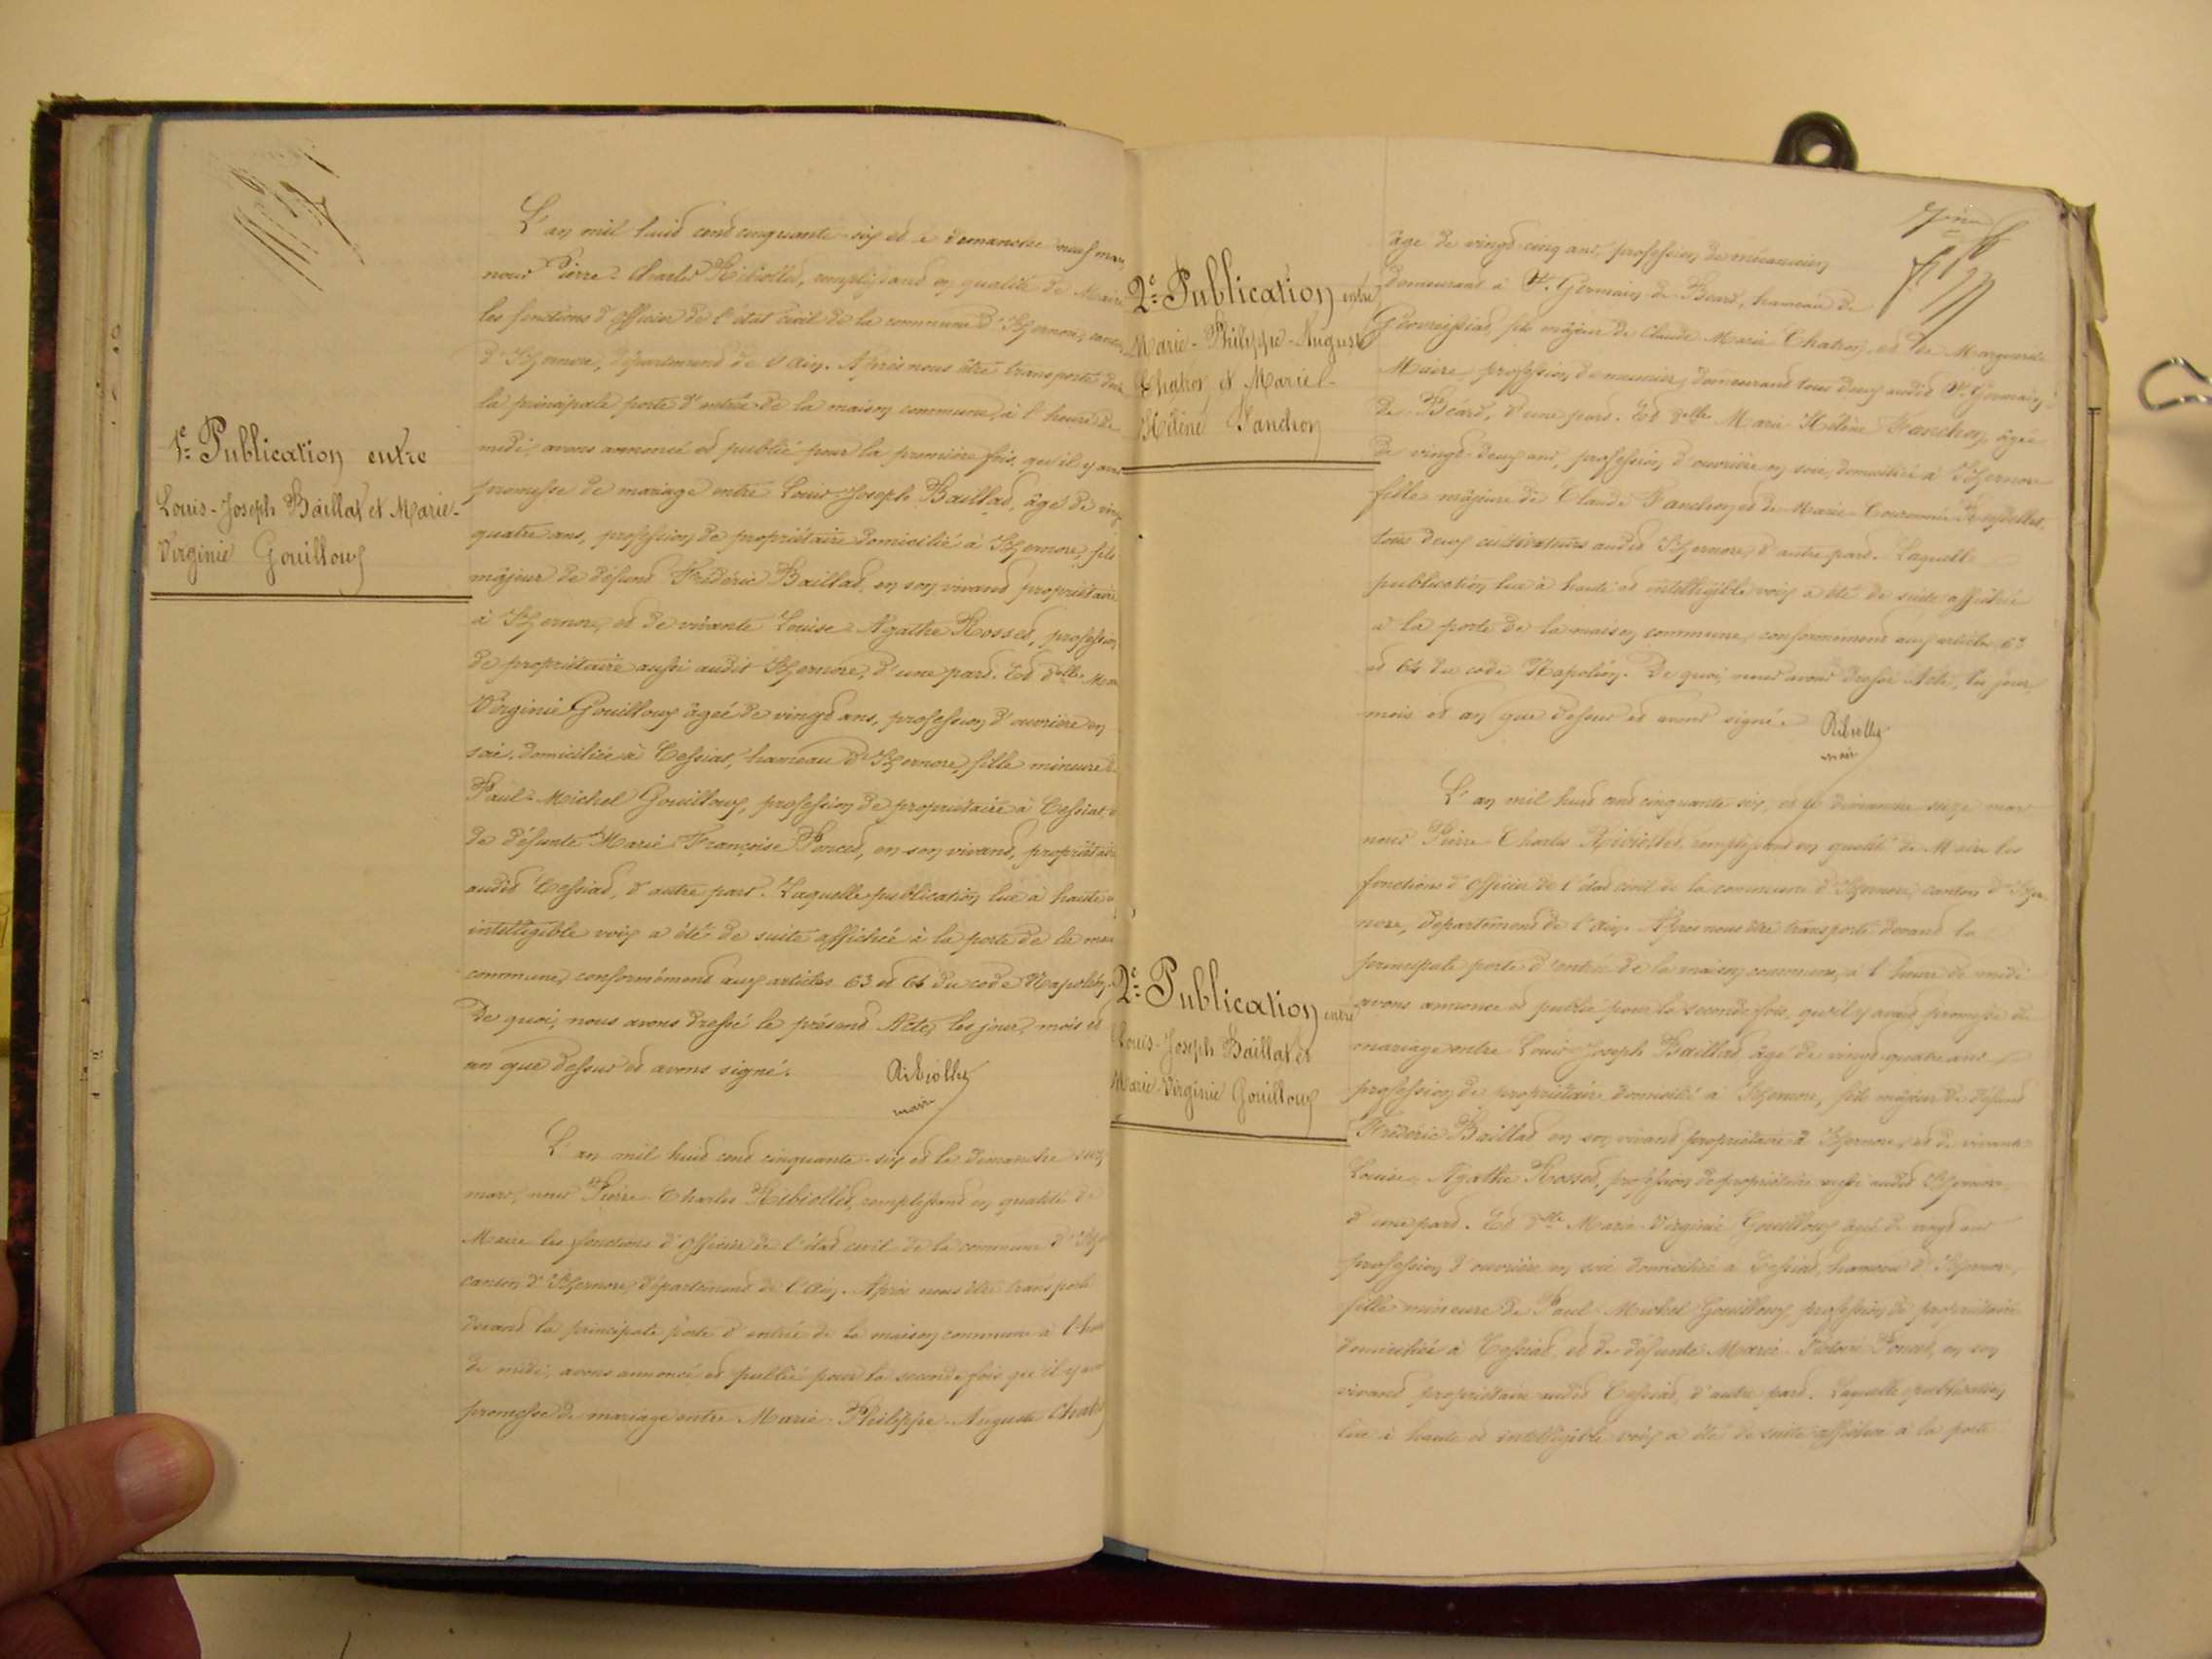 1e Publication entre
Louis-Joseph Baillat et Marie-
Virginie Gouilloux
L'an mil huit cent cinquante-six et le dimanche neuf mars,
nous Pierre-Charles Ribiollet, remplissant en qualité de Maire
les fonctions d'officier de l'état civil de la commune d'Izernore, canton
d'Izernore, département de l'Ain. Après nous être transporté devant
la principale porte d'entrée de la maison commune, à l'heure de
midi, avons annoncé et publié pour la première fois, qu'il y avait
promesse de mariage entre Louis-Joseph Baillat, âgé de vingt
quatre ans, profession de propriétaire domicilié à Izernore, fils
mâjeur de défunt Frédéric Baillat, en son vivant propriétaire
à Izernore, et de vivante Louise-Agathe Rosset, profession
de propriétaire aussi audit Izernore, d'une part. Et delle Marie
Virginie Gouilloux âgée de vingt ans, profession d'ouvrière en
soie, domiciliée à Cessiat, hameau d'Izernore, fille mineure de
Paul-Michel Gouilloux, profession de propriétaire à Cessiat, et
de défunte Marie Françoise Poncet, en son vivant, propriétaire
audit Cessiat, d'autre part. Laquelle publication lue à haute et
intelligible voix a été de suite affichée à la porte de la maison
commune, conformément aux articles 63 et 64 du code Napoléon.
De quoi, nous avons dressé le présent Acte, les jour, mois et
an que dessus et avons signé.
Ribiollet
maire
L'an mil huit cent cinquante-six et le dimanche seize
mars, nous Pierre-Charles Ribiollet, remplissant en qualité de
Maire les fonctions d'officier de l'état civil de la commune d'Izernore
canton d'Izernore, département de l'Ain. Après nous être transporté
devant la principale porte d'entrée de la maison commune à l'heure
de midi, avons annoncé et publié pour la seconde fois qu'il y avait
promesse de mariage entre Marie-Philippe-Auguste Chatron
2e Publication entre
Marie-Philippe-Auguste
Chatron et Marie-
Hélène Tanchon
âgé de vingt-cinq ans, profession de mécanicien
demeurant à St. Germain-de-Béard, hameau de
Géovreissiat, fils mâjeur de Claude Marie Chatron, et de Marguerite
Maire, profession de meunier, demeurant tous deux audit St. Germain-
de-Béard, d'une part. Et delle Marie-Hélène Tanchon, âgée
de vingt-deux ans, profession d'ouvrière en soie, domiciliée à Izernore
fille mâjeure de Claude Tanchon et de Marie-Couronnée
tous deux cultivateurs audit Izernore, d'autre part. Laquelle
publication lue à haute et intelligible voix a été de suite affichée
à la porte de la maison commune, conformément aux articles 63
et 64 du code Napoléon. De quoi, nous avons dressé Acte, les jour,
mois et an que dessus et avons signé.
Ribiollet
maire
2e Publication entre
Louis-Joseph Baillat et
Marie-Virginie Gouilloux
L'an mil huit cent cinquante six, et le dimanche seize mars
nous Pierre-Charles Ribiollet, remplissant en qualité de Maire les
fonctions d'officier de l'état civil de la commune d'Izernore, canton d'Izer-
nore, département de l'Ain. Après nous être transporté devant la
principale porte d'entrée de la maison commune, à l'heure de midi
avons annoncé et publié pour la seconde fois, qu'il y avait promesse de
mariage entre Louis-Joseph Baillat, âgé de vingt-quatre ans
profession de propriétaire domicilié à Izernore, fils mâjeur de défunt
Frédéric Baillat en son vivant propriétaire à Izernore, et de vivante
Louise-Agathe Rosset, profession de propriétaire aussi audit Izernore,
d'une part. Et delle Marie-Virginie Gouilloux âgée de vingt ans
profession d'ouvrière en soie domiciliée à Cessiat, hameau d'Izernore,
fille mineure de Paul-Michel Gouilloux, profession de propriétaire
domiciliée à Cessiat, et de défunte Marie Poncet, en son
vivant propriétaire audit Cessiat, d'autre part. Laquelle publication
lue à haute et intelligible voix a été de suite affichée à la porte